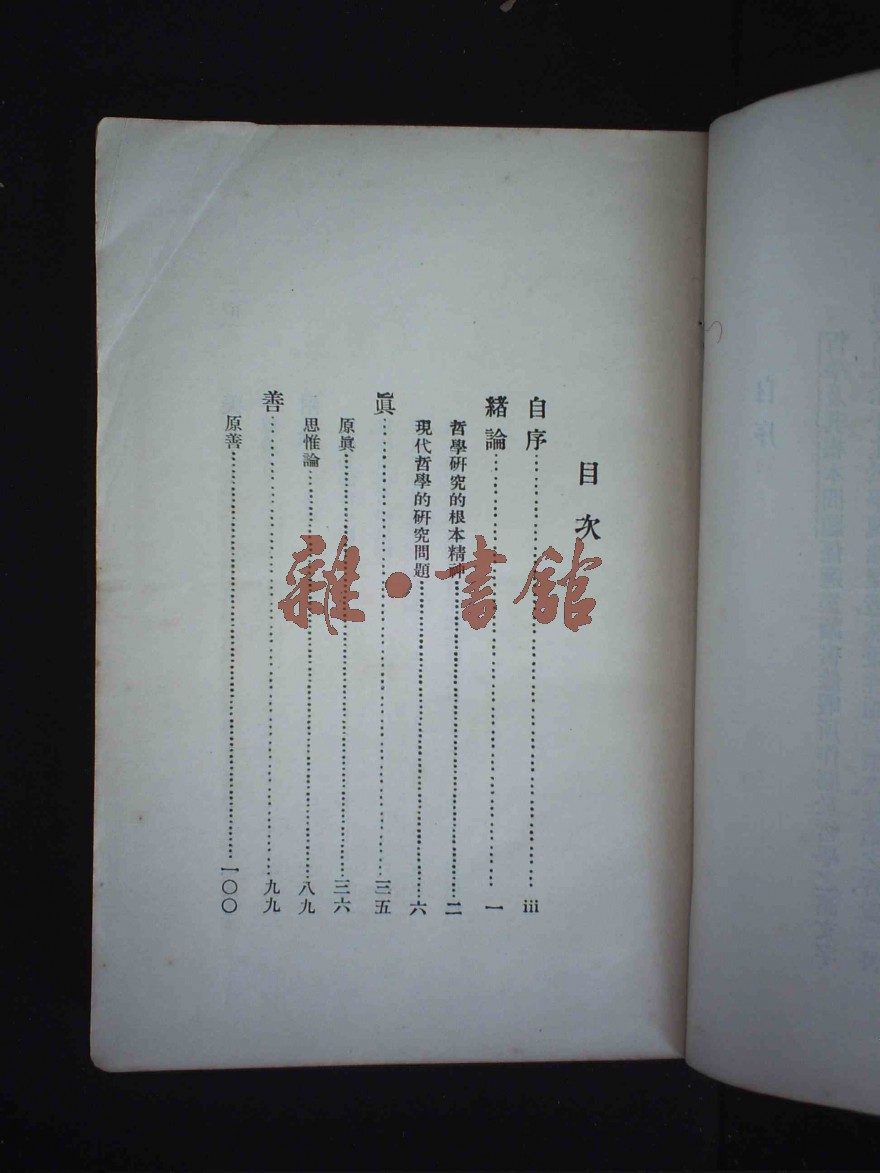 目次
自序……iii
緒論……一
哲學硏究的根本精神……二
現代哲學的硏究問題……六
眞……三五
原眞……三六
思惟論……八九
善……九九
原善……一〇〇
雜·書館
自序